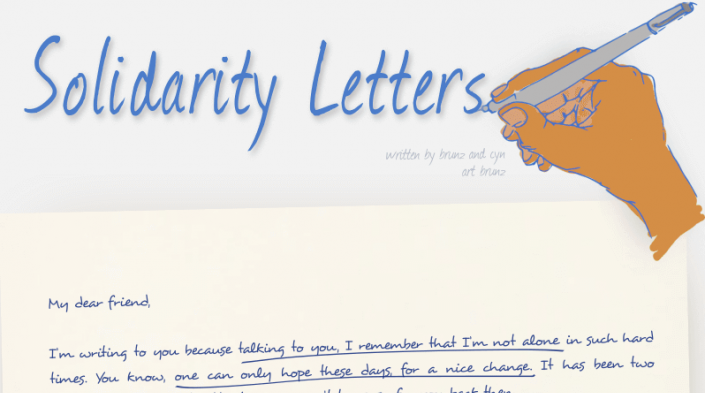 Solidarity Letters
written by brunz and cyn
art brunz
My dear friend,
I'm writing to you because talking to you, I remember that I'm not alone in such hard
times. You know, one can only hope these days, for a nice change. It has been two